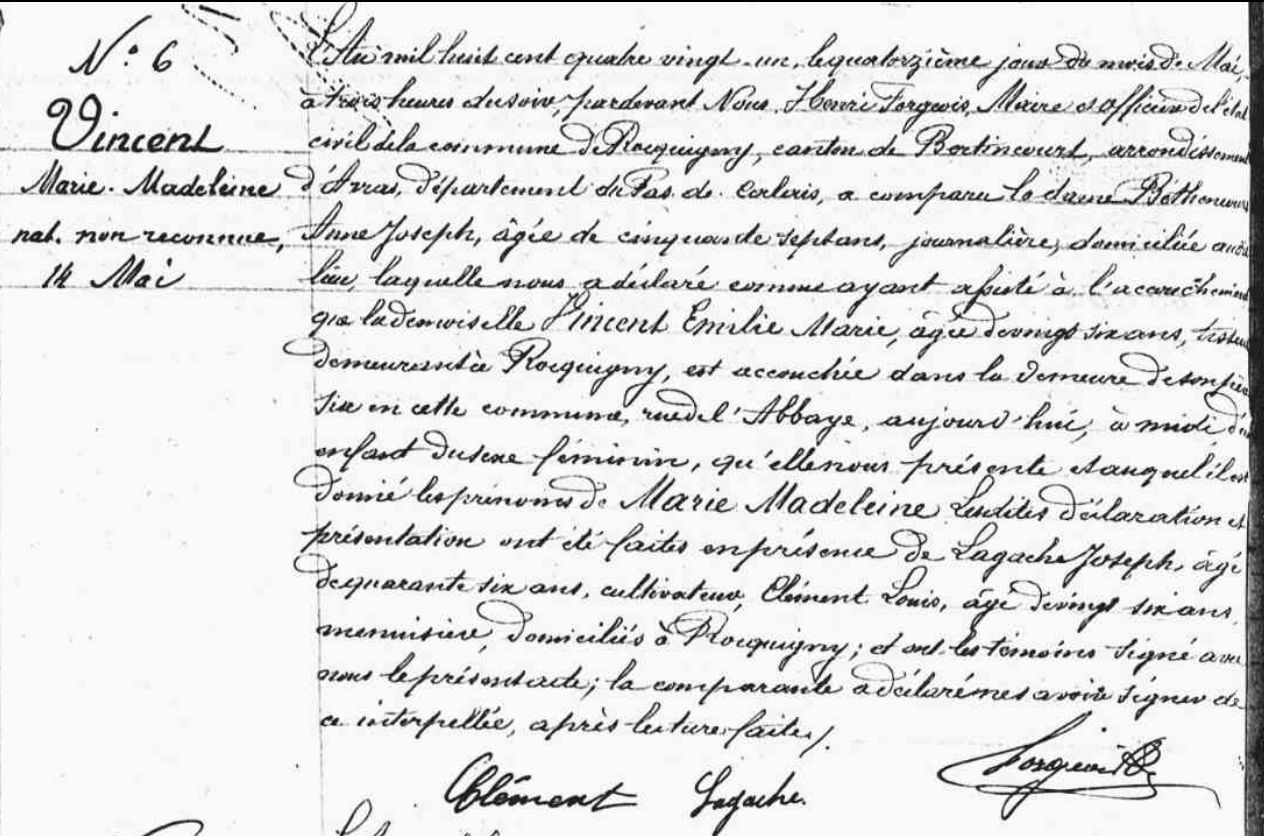 N° 6
Vincent
Marie-Madeleine
nat. non reconnue,
14 Mai
L'An mil huit cent quatre vingt-un, le quatorzième jour du mois de Mai,
à trois heures du soir, pardevant Nous Henri Forgeois, Maire et officier de l'état
civil de la commune de Rocquigny, canton de Bertincourt, arrondissement
d'Arras, département du Pas-de-Calais, a comparu la dame Béthencourt
Anne Joseph, âgée de cinquante sept ans, journalière, domiciliée audit
lieu, laquelle nous a déclaré comme ayant assisté à l'accouchement
que la demoiselle Vincent Emilie Marie, âgée de vingt six ans,
demeurant à Rocquigny, est accouchée dans la demeure de son père
sise en cette commune, rue de l'Abbaye, aujourd'hui, à midi d'un
enfant du sexe féminin, qu'elle nous présente et auquel il est
donné les prénoms de Marie Madeleine Lesdites déclaration et
présentation ont été faites en présence de Lagache Joseph, âgé
de quarante six ans, cultivateur, Clément Louis, âgé de vingt six ans,
menuisier, domiciliés à Rocquigny; et ont les témoins signé avec
nous le présent acte; la comparante a déclaré ne savoir signer de
ce interpellée, après lecture faite /.
Clément Lagache. Forgeois